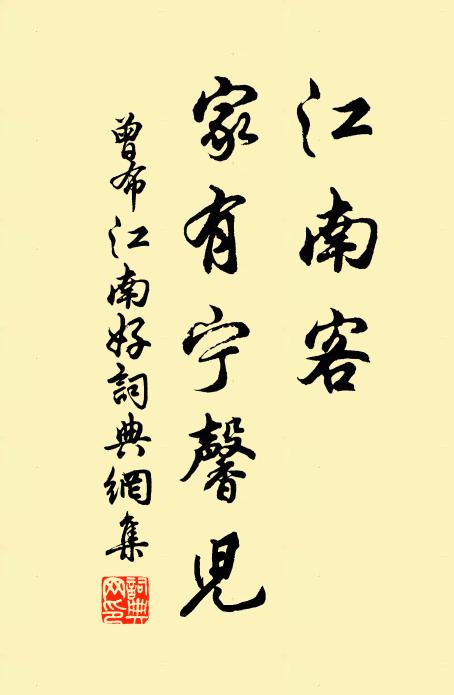 江南客
家有宁馨児
曾布江南好詞典網集
詞典網印